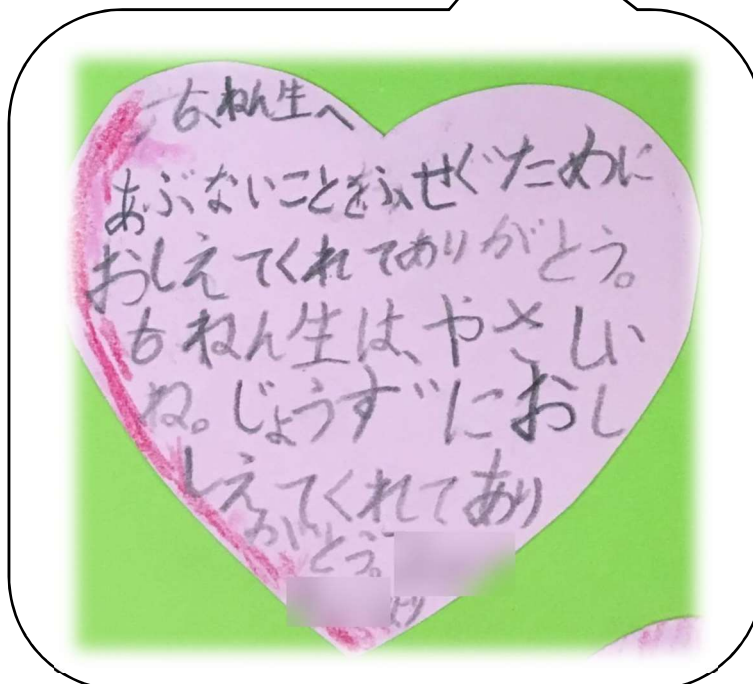 6ねん生へ
あぶないことをふせぐために
おしえてくれてありがとう。
6ねん生は、やさしい
ね。じょうずにおし
しえてくれてあり
がとう。
より